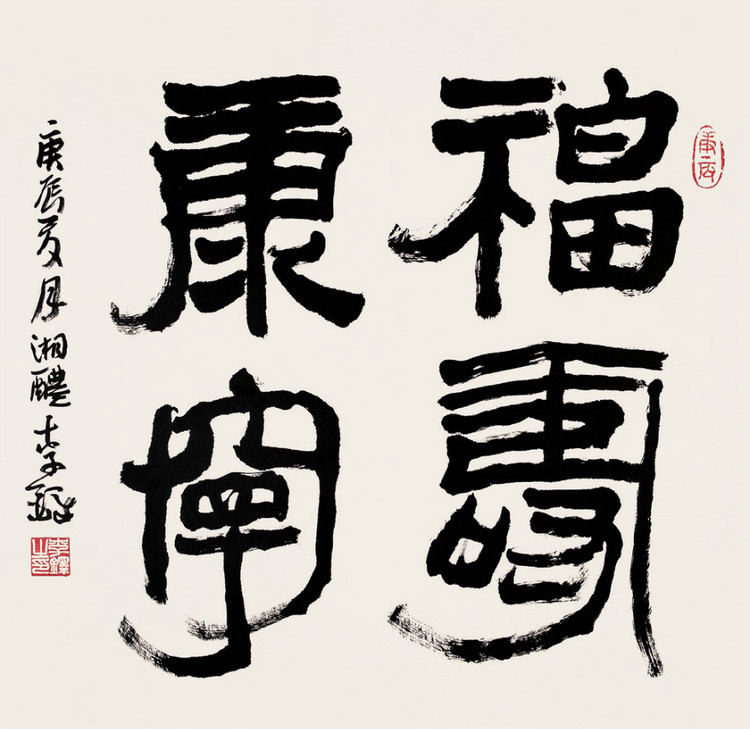 庚辰
福壽
康寧
庚辰夏月湘醴李鐸
李鐸之印